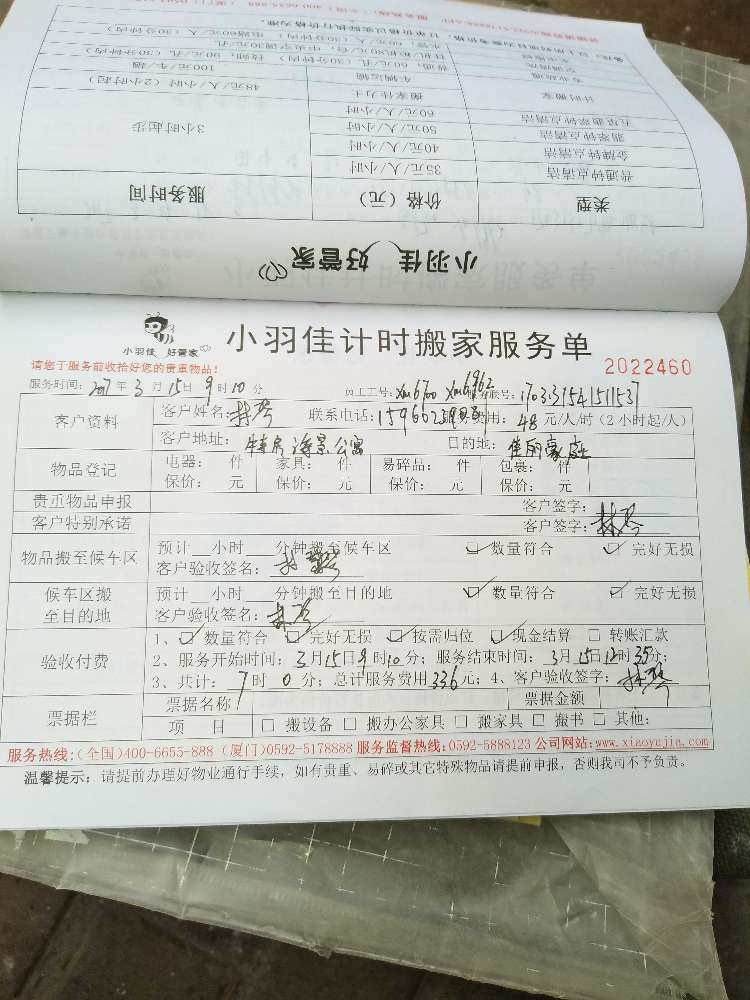 服务时间
价格（元）
类型
3小时起步
35元/人/小时
普通钟点清洁
40元/人/小时
金牌钟点清洁
50元/人/小时
翡翠钟点清洁
60元/人/小时
五星翡翠钟点清洁
48元/人/小时（2小时起）
搬家佳力士
计时搬家
100元/车/趟
车辆运输
小羽佳 好管家
小羽佳 好管家
小羽佳计时搬家服务单
2022460
请您于服务前收拾好您的贵重物品!
服务时间: 2017年3月15日9时10分 员工工号: xm6700 xm6962
客户资料
客户姓名: 林琴 联系电话: 服务费用: 48元/人/时（2小时起/人）
客户地址: 特房海景公寓 目的地: 佳丽豪庭
物品登记
电器: 件 家具: 件 易碎品: 件 包裹: 件
保价: 元 保价: 元 保价: 元 保价: 元
贵重物品申报 客户签字:
客户特别承诺 客户签字: 林琴
物品搬至候车区
预计__小时__分钟搬至候车区 ☑数量符合 ☑完好无损
客户验收签名: 林琴
候车区搬至目的地
预计__小时__分钟搬至目的地 ☑数量符合 ☑完好无损
客户验收签名: 林琴
验收付费
1、☑数量符合 ☑完好无损 ☑按需归位 ☑现金结算 □转账汇款
2、服务开始时间: 3月15日9时10分; 服务结束时间: 3月15日12时35分;
3、共计: 7时0分; 总计服务费用336元; 4、客户验收签字: 林琴
票据栏
票据名称 票据金额
项 目 □搬设备 □搬办公家具 □搬家具 □搬书 □其他:
服务热线:(全国)400-6655-888 (厦门)0592-5178888 服务监督热线:0592-5888123 公司网站:www.xiaoyujia.com
温馨提示: 请提前办理好物业通行手续，如有贵重、易碎或其它特殊物品请提前申报，否则我司不予负责。